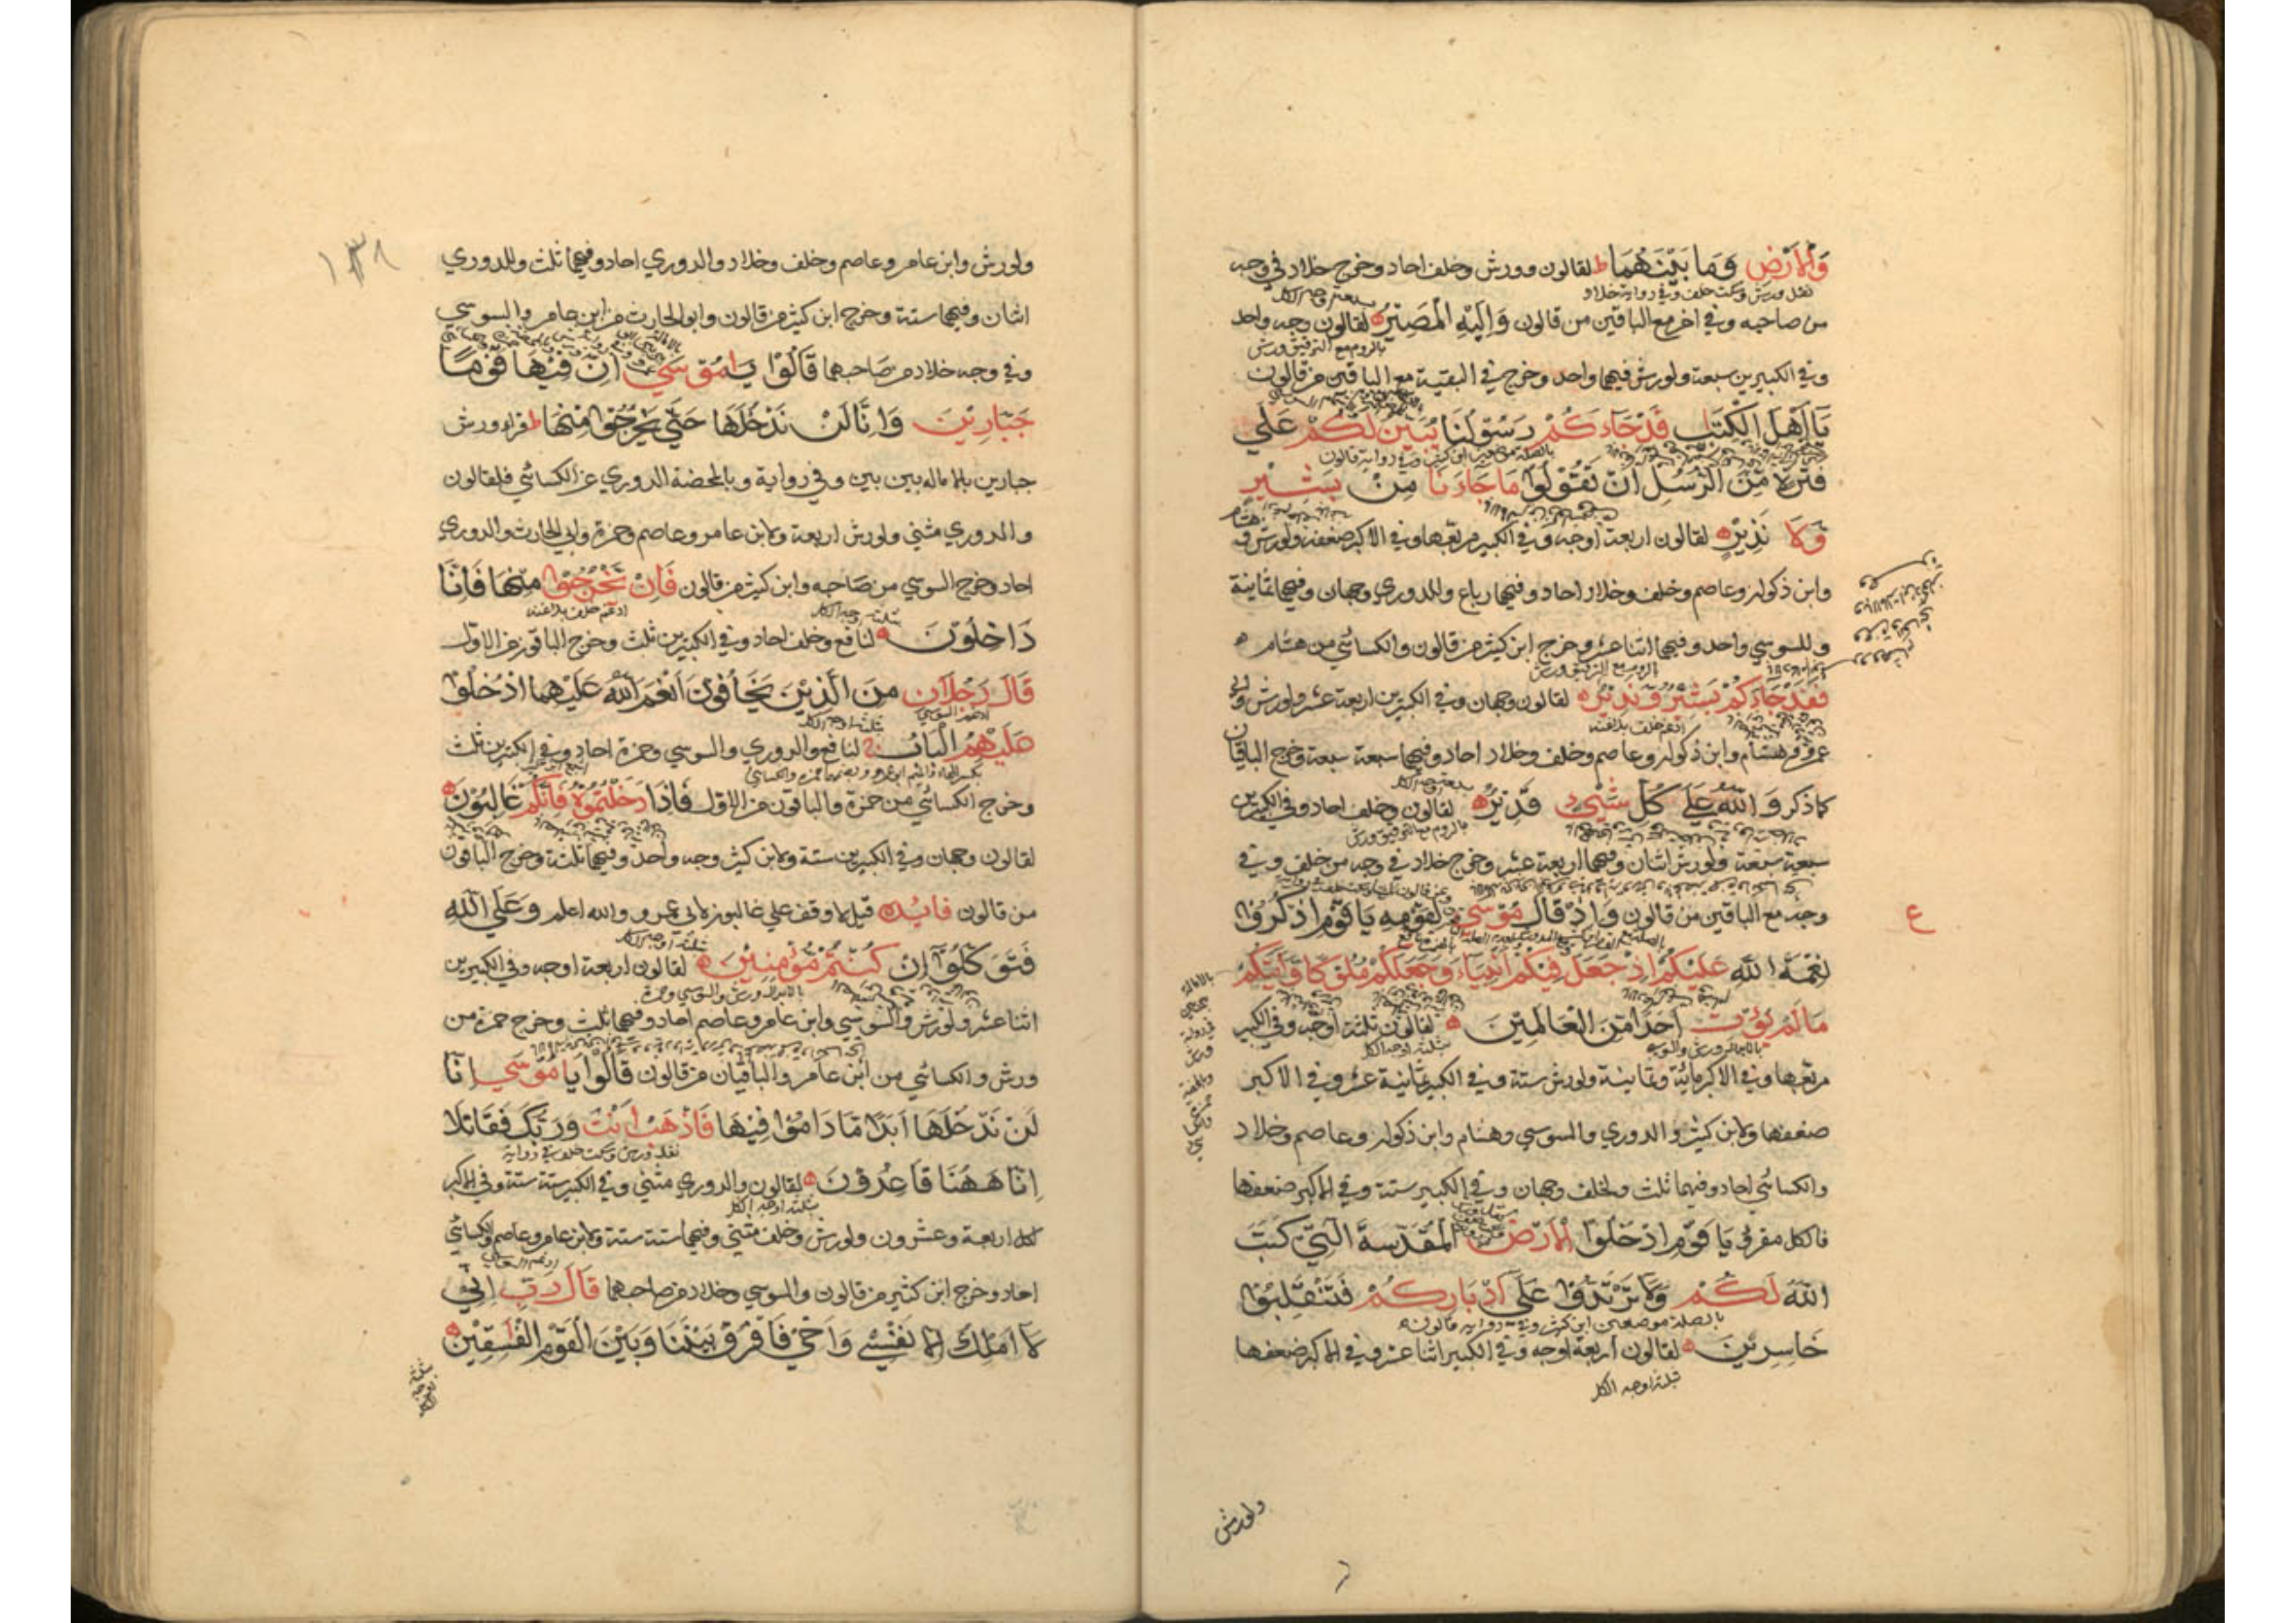 وَالْأَرْضِ وَمَا بَيْنَهُمَا ط لقالون وورش وخلف احاد وخرج خلاد في وجه
نقل ورش وسكت خلف وفي رواية خلاد
من صاحبه وفي اخر مع الباقين من قالون وَإِلَيْهِ الْمَصِيرُ لقالون وجه واحد
بالروم مع الترقيق ورش
وفي الكبيرين سبعة ولورش فيهما واحد وخرج في البقية مع الباقين من قالون
يَا أَهْلَ الْكِتَابِ قَدْ جَاءَكُمْ رَسُولُنَا يُبَيِّنُ لَكُمْ عَلَى
فَتْرَةٍ مِنَ الرُّسُلِ أَنْ تَقُولُوا مَا جَاءَنَا مِنْ بَشِيرٍ
وَلَا نَذِيرٍ لقالون اربعة اوجه وفي الكبير مربعها وفي الاكبر ضعفه ولورش و
هشام
وابن ذكوان وعاصم وخلف وخلاد احاد وفيهما رباع وللدوري وجهان وفيهما ثمانية
وللسوسي واحد وفيهما اثنا عشر وخرج ابن كثير من قالون والكسائي من هشام
بالروم مع الترقيق ورش
فَقَدْ جَاءَكُمْ بَشِيرٌ وَنَذِيرٌ لقالون وجهان وفي الكبيرين اربعة عشر ولورش
ادغم خلف بلا غنة
وهشام وابن ذكوان وعاصم وخلف وخلاد احاد وفيهما سبعة سبعة وخرج الباقيان
كما ذكر وَاللَّهُ عَلَى كُلِّ شَيْءٍ قَدِيرٌ لقالون وخلف احاد وفي الكبيرين
بالروم مع الترقيق ورش
سبعة سبعة ولورش اثنان وفيهما اربعة عشر وخرج خلاد في وجه من خلف وفي
وجه مع الباقين من قالون وَإِذْ قَالَ مُوسَى لِقَوْمِهِ يَا قَوْمِ اذْكُرُوا
ع
نِعْمَةَ اللَّهِ عَلَيْكُمْ إِذْ جَعَلَ فِيكُمْ أَنْبِيَاءَ وَجَعَلَكُمْ مُلُوكًا وَآتَيكُمْ
مَا لَمْ يُؤْتِ أَحَدًا مِنَ الْعَالَمِينَ لقالون ثلثة اوجه وفي الكبير
بالابدال ورش والسوسي
ثلثة اوجه الكل
مربعها وفي الاكبر مائة وثمانية ولورش ستة وفي الكبير ثمانية عشر وفي الاكبر
ضعفها ولابن كثير والدوري والسوسي وهشام وابن ذكوان وعاصم وخلاد
والكسائي احاد وفيهما ثلث ولخلف وجهان وفي الكبير ستة وفي الاكبر ضعفها
فالكل مفرق يَا قَوْمِ ادْخُلُوا الْأَرْضَ الْمُقَدَّسَةَ الَّتِي كَتَبَ
اللَّهُ لَكُمْ وَلَا تَرْتَدُّوا عَلَى أَدْبَارِكُمْ فَتَنْقَلِبُوا
بالصلة موضعين ابن كثير وفي رواية قالون
خَاسِرِينَ لقالون اربعة اوجه وفي الكبير اثنا عشر وفي الاكبر ضعفها
ثلثة اوجه الكل
ولورش
١٣٨
ولورش وابن عامر وعاصم وخلف وخلاد والدوري احاد وفيهما ثلث وللدوري
اثنان وفيهما ستة وخرج ابن كثير من قالون وابو الحارث من ابن عامر والسوسي
وفي وجه خلاد من صاحبهما قَالُوا يَا مُوسَى إِنَّ فِيهَا قَوْمًا
جَبَّارِينَ وَإِنَّا لَنْ نَدْخُلَهَا حَتَّى يَخْرُجُوا مِنْهَا ط قراء ورش
جبارين بالاماله بين بين وفي رواية وبالمحضة الدوري عن الكسائي فلقالون
والدوري مثني ولورش اربعة ولابن عامر وعاصم وحمزة وابي الحارث والدوري
احاد وخرج السوسي من صاحبه وابن كثير من قالون فَإِنْ يَخْرُجُوا مِنْهَا فَإِنَّا
ادغم خلف بلا غنة
دَاخِلُونَ لنافع وخلف احاد وفي الكبيرين ثلث وخرج الباقون من الاول
قَالَ رَجُلَانِ مِنَ الَّذِينَ يَخَافُونَ أَنْعَمَ اللَّهُ عَلَيْهِمَا ادْخُلُوا
ادغم السوسي
عَلَيْهِمُ الْبَابَ لنافع والدوري والسوسي وحمزة احاد وفي الكبيرين ثلث
وخرج الكسائي من حمزة والباقون من الاول فَإِذَا دَخَلْتُمُوهُ فَإِنَّكُمْ غَالِبُونَ
لقالون وجهان وفي الكبيرين ستة ولابن كثير وجه واحد وفيهما ثلثة وخرج الباقون
من قالون فايده قيل لا وقف علي غالبون لابي عمرو والله اعلم وَعَلَى اللَّهِ
فَتَوَكَّلُوا إِنْ كُنْتُمْ مُؤْمِنِينَ لقالون اربعة اوجه وفي الكبيرين
بالابدال ورش والسوسي وحمزة
اثنا عشر ولورش والسوسي وابن عامر وعاصم احاد وفيهما ثلث وخرج حمزة من
ورش والكسائي من ابن عامر والباقيان من قالون قَالُوا يَا مُوسَى إِنَّا
لَنْ نَدْخُلَهَا أَبَدًا مَا دَامُوا فِيهَا فَاذْهَبْ أَنْتَ وَرَبُّكَ فَقَاتِلَا
نقل ورش وسكت خلف في رواية
إِنَّا هَهُنَا قَاعِدُونَ لقالون والدوري مثني وفي الكبير ستة ستة وفي الاكبر
ثلثة اوجه الكل
لكل اربعة وعشرون ولورش وخلف مثني وفيهما ستة ستة ولابن عامر وعاصم والكسائي
ادغم السوسي
احاد وخرج ابن كثير من قالون والسوسي وخلاد من صاحبهما قَالَ رَبِّ إِنِّي
لَا أَمْلِكُ إِلَّا نَفْسِي وَأَخِي فَافْرُقْ بَيْنَنَا وَبَيْنَ الْقَوْمِ الْفَاسِقِينَ